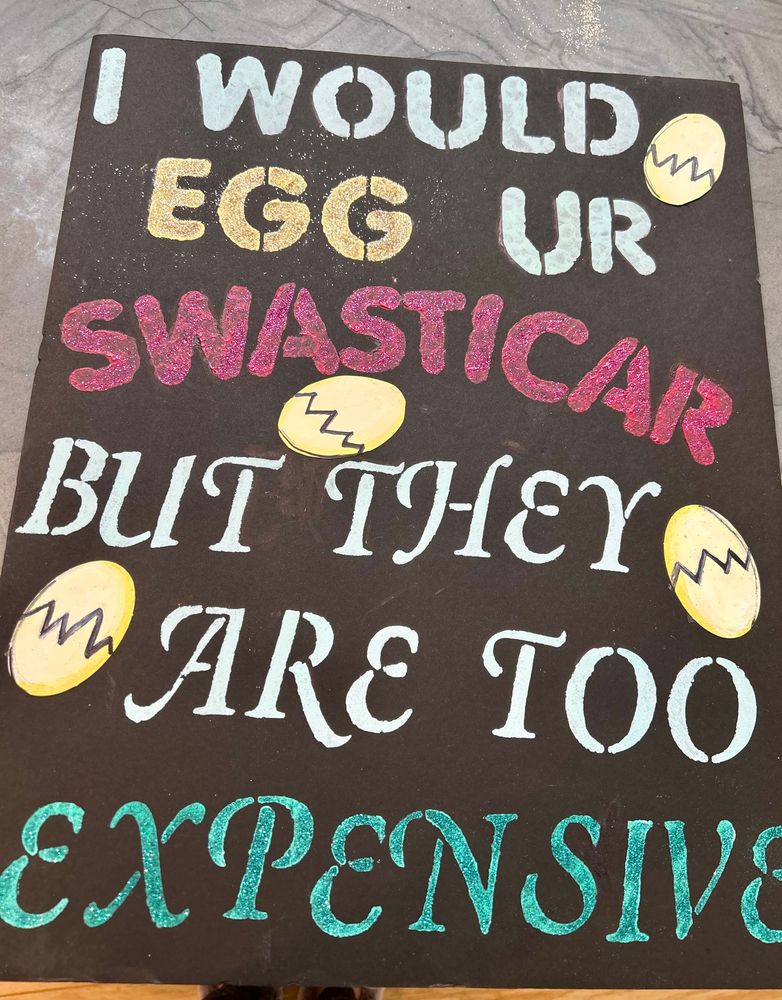 I WOULD
EGG UR
SWASTICAR
BUT THEY
ARE TOO
EXPENSIVE